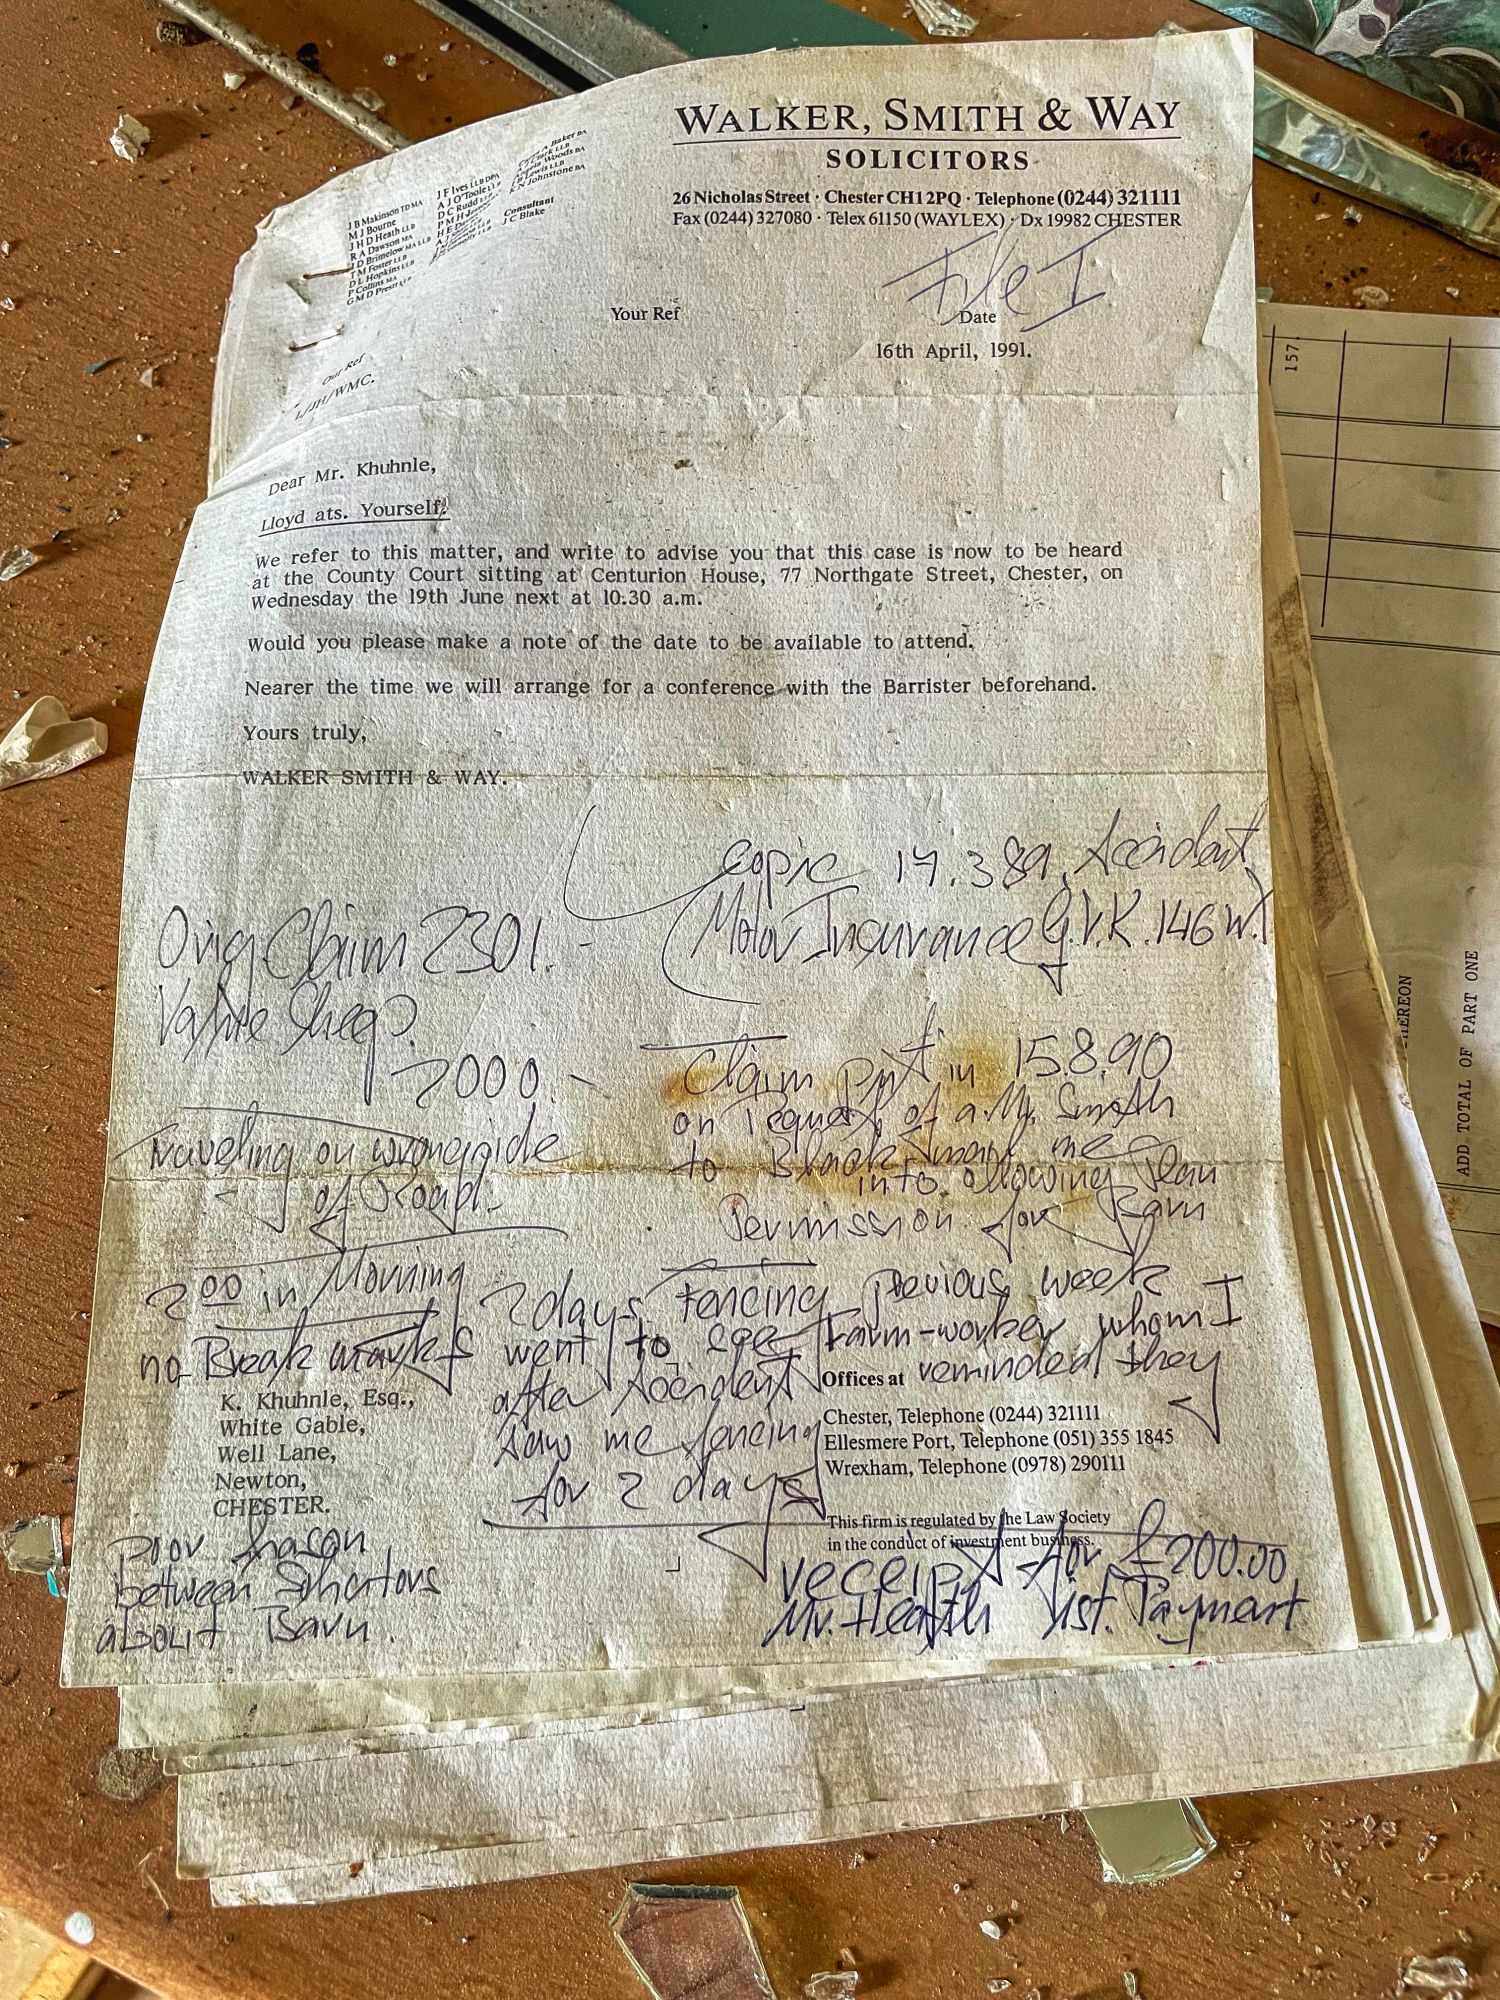 WALKER, SMITH & WAY
SOLICITORS
26 Nicholas Street · Chester CH1 2PQ · Telephone (0244) 321111
Fax (0244) 327080 · Telex 61150 (WAYLEX) · Dx 19982 CHESTER
J B Makinson TD MA
M J Bourne
J H D Heath LLB
R A Dawson MA
J D Brimelow MA LLB
T M Foster LLB
D L Hopkins LLB
P Collins MA
G M D
J F Ives LLB DPA
A J O'Toole LLB
D C Rudd
P M H
Baker BA
Woods BA
Lewis LLB
K N Johnstone BA
Consultant
J C Blake
File I
Your Ref
Date
16th April, 1991.
Our Ref
L/JH/WMC.
Dear Mr. Khuhnle,
Lloyd ats. Yourself.
We refer to this matter, and write to advise you that this case is now to be heard
at the County Court sitting at Centurion House, 77 Northgate Street, Chester, on
Wednesday the 19th June next at 10.30 a.m.
Would you please make a note of the date to be available to attend.
Nearer the time we will arrange for a conference with the Barrister beforehand.
Yours truly,
WALKER SMITH & WAY.
copie 14.3 89. Accident
Motor Insurance G.V.K. 146 W.
Orig Claim 2301. -
Value Sheep
2000. -
Claim put in 15.8.90
on request of a Mr. Smith
to Black me
into allowing Plan
Permission for Barn
Traveling on wrongside
of Road.
2 00 in Morning
no Break marks
2 days Fencing previous week
went to see Farm-worker whom I
after Accident reminded they
saw me fencing
for 2 days
K. Khuhnle, Esq.,
White Gable,
Well Lane,
Newton,
CHESTER.
Offices at
Chester, Telephone (0244) 321111
Ellesmere Port, Telephone (051) 355 1845
Wrexham, Telephone (0978) 290111
This firm is regulated by the Law Society
in the conduct of investment business.
Poor
between Solicitors
about Barn.
receipt for £200.00
Mr. Heath 1st. Payment
157.
HEREON
ADD TOTAL OF PART ONE